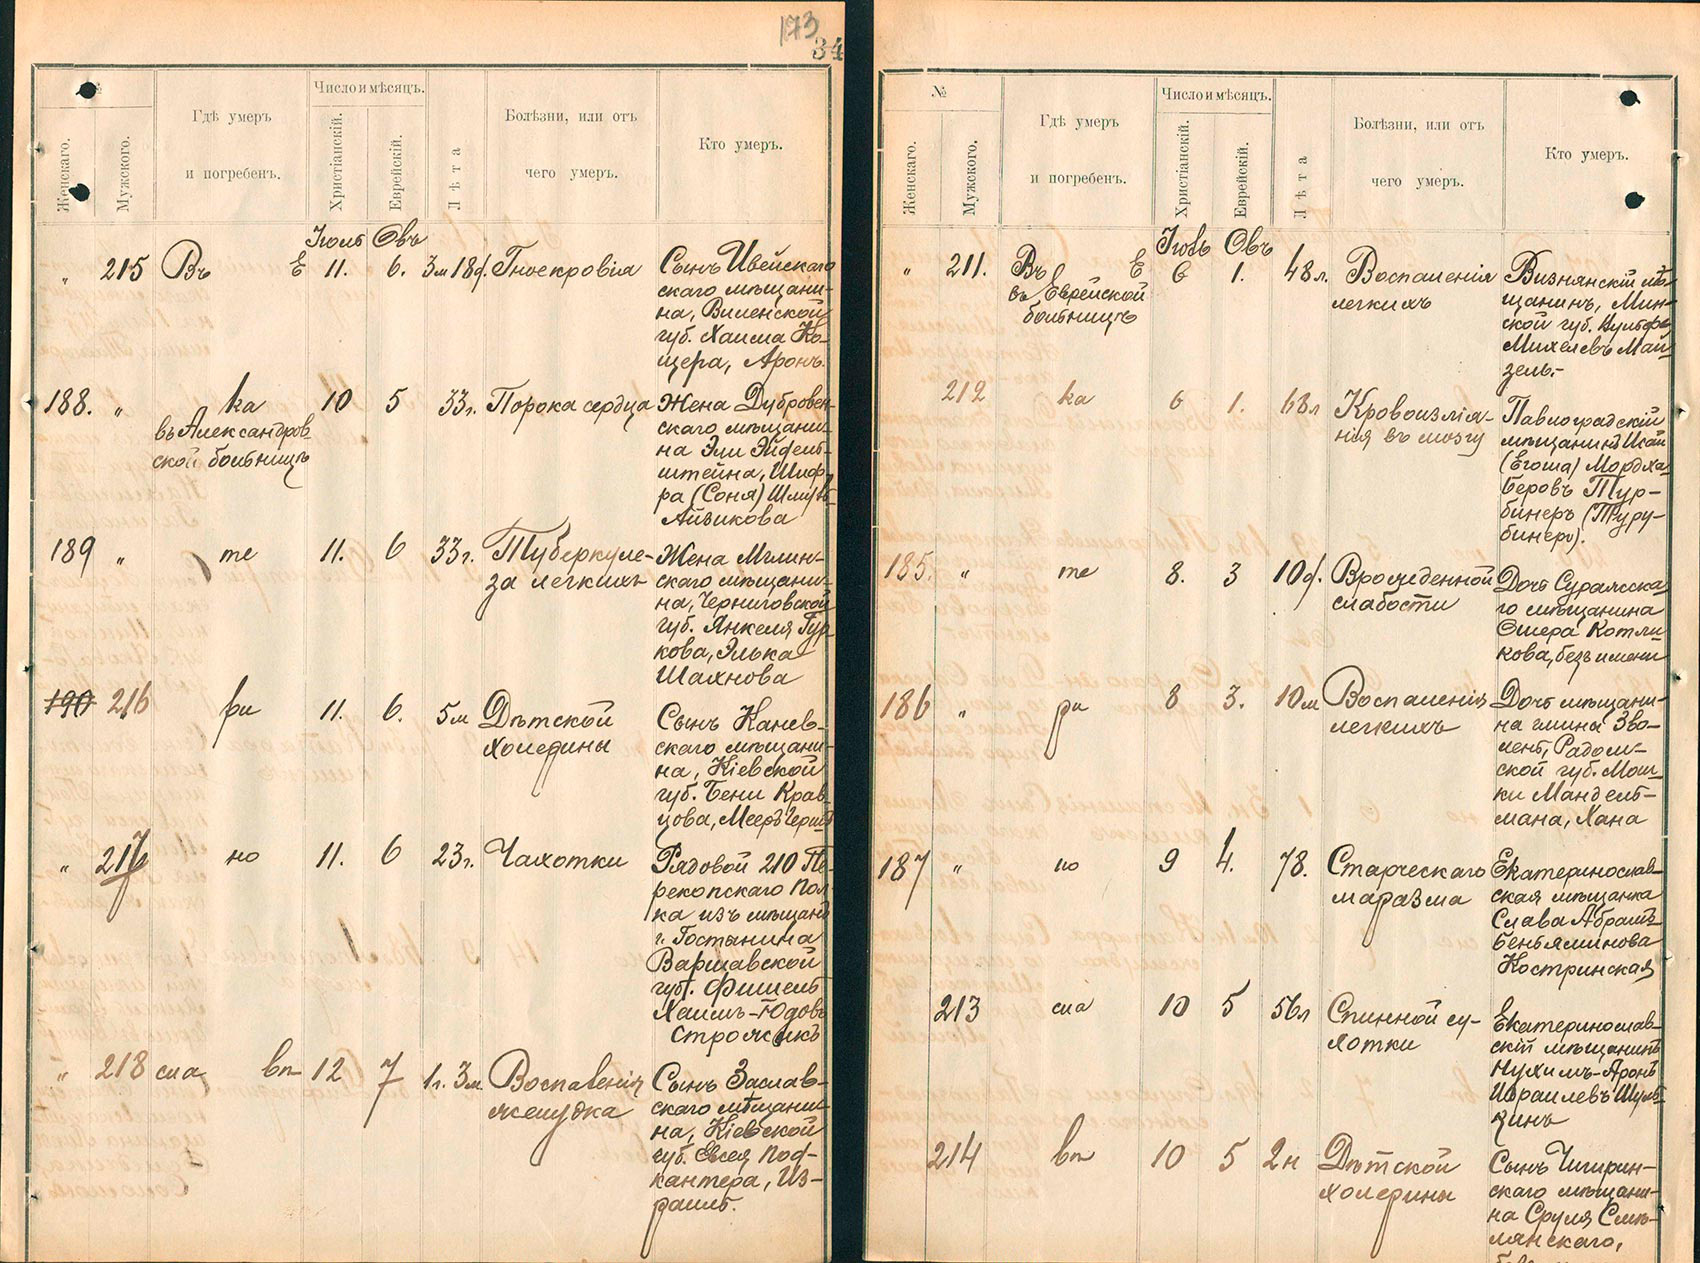 173
34
№
Женскаго.
Мужского.
Гдѣ умеръ
и погребенъ.
Число и мѣсяцъ.
Христіанскій.
Еврейскій.
Лѣта
Болѣзни, или отъ
чего умеръ.
Кто умеръ.
Іюль Овъ
" 215 Въ Е 11. 6. 3м 18д. Гноекровія
Сынъ Ивейскаго
скаго мѣщани-
на, Виленской
губ. Хаима Ко-
щера, Аронъ.
188. " ка 10 5 33г. Порока сердца
въ Александров-
ской больницѣ
Жена Дубровен-
скаго мѣщани-
на Эли Эйдель-
штейна, Шиф-
ра (Соня)
Айзикова
189 " те 11. 6 33г. Туберкуле-
за легкихъ
Жена Мглин-
скаго мѣщани-
на, Черниговской
губ. Янкеля Гур-
кова, Элька
Шахнова
190 216 ри 11. 6. 5м Дѣтской
холерины
Сынъ Канев-
скаго мѣщани-
на, Кіевской
губ. Бени Крав-
цова, Мееръ Герш
" 217 но 11. 6 23г. Чахотки
Рядовой 210 Пе-
рекопскаго пол-
ка изъ мѣщанъ
г. Гостынина
Варшавской
губ. Фишель
Хаимъ-Юдовъ
Строжикъ
" 218 сла вп 12 7 1г. 3м. Воспаленія
желудка
Сынъ Заслав-
скаго мѣщани-
на, Кіевской
губ. Евсея Под-
кантера, Из-
раиль.
№
Женскаго.
Мужского.
Гдѣ умеръ
и погребенъ.
Число и мѣсяцъ.
Христіанскій.
Еврейскій.
Лѣта
Болѣзни, или отъ
чего умеръ.
Кто умеръ.
Іюль Овъ
" 211. Въ Е 6 1. 48л. Воспаленія
въ Еврейской
больницѣ
легкихъ
Визнянскій мѣ-
щанинъ, Мин-
ской губ.
Михелевъ Май-
зель.-
212 ка 6 1. 68л Кровоизлія-
нія въ мозгу
Павлоградскій
мѣщанинъ
(Егоша) Мордха-
Беровъ Тур-
бинеръ (Туру-
бинеръ).
185. " те 8. 3 10д. Врожденной
слабости
Дочь Суражска-
го мѣщанина
Ошера Котли-
кова, безъ имени
186 " ри 8 3. 10м Воспаленія
легкихъ
Дочь мѣщани-
на гмина Зво-
лень, Радом-
ской губ. Мош-
ки Мандель-
мана, Хана
187 " но 9 4. 78. Старческаго
маразма
Екатеринослав-
ская мѣщанка
Слава Абрамъ-
Беньяминова
Костринская
213 сла 10 5 56л Спинной су-
хотки
Екатеринослав-
скій мѣщанинъ
Нухимъ-Аронъ
Израилевъ Шуль-
зинъ
214 вп 10 5 2н Дѣтской
холерины
Сынъ Чигирин-
скаго мѣщани-
на Сруля Смѣ-
лянскаго,